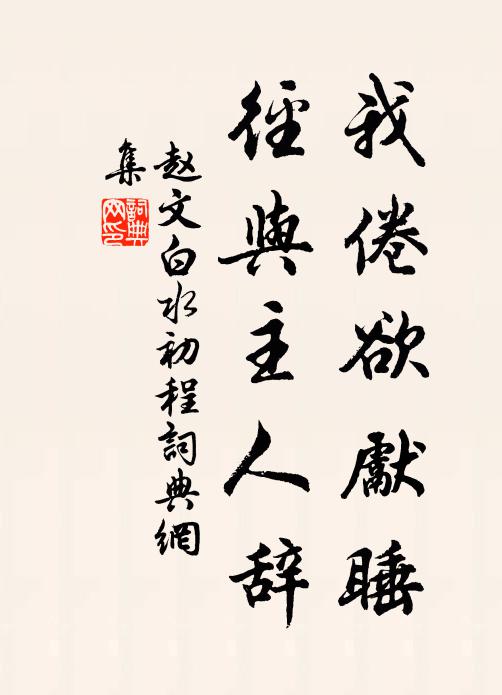 我倦欲獻睡
徑與主人辞
赵文白水初程詞典網
集
詞典
网印